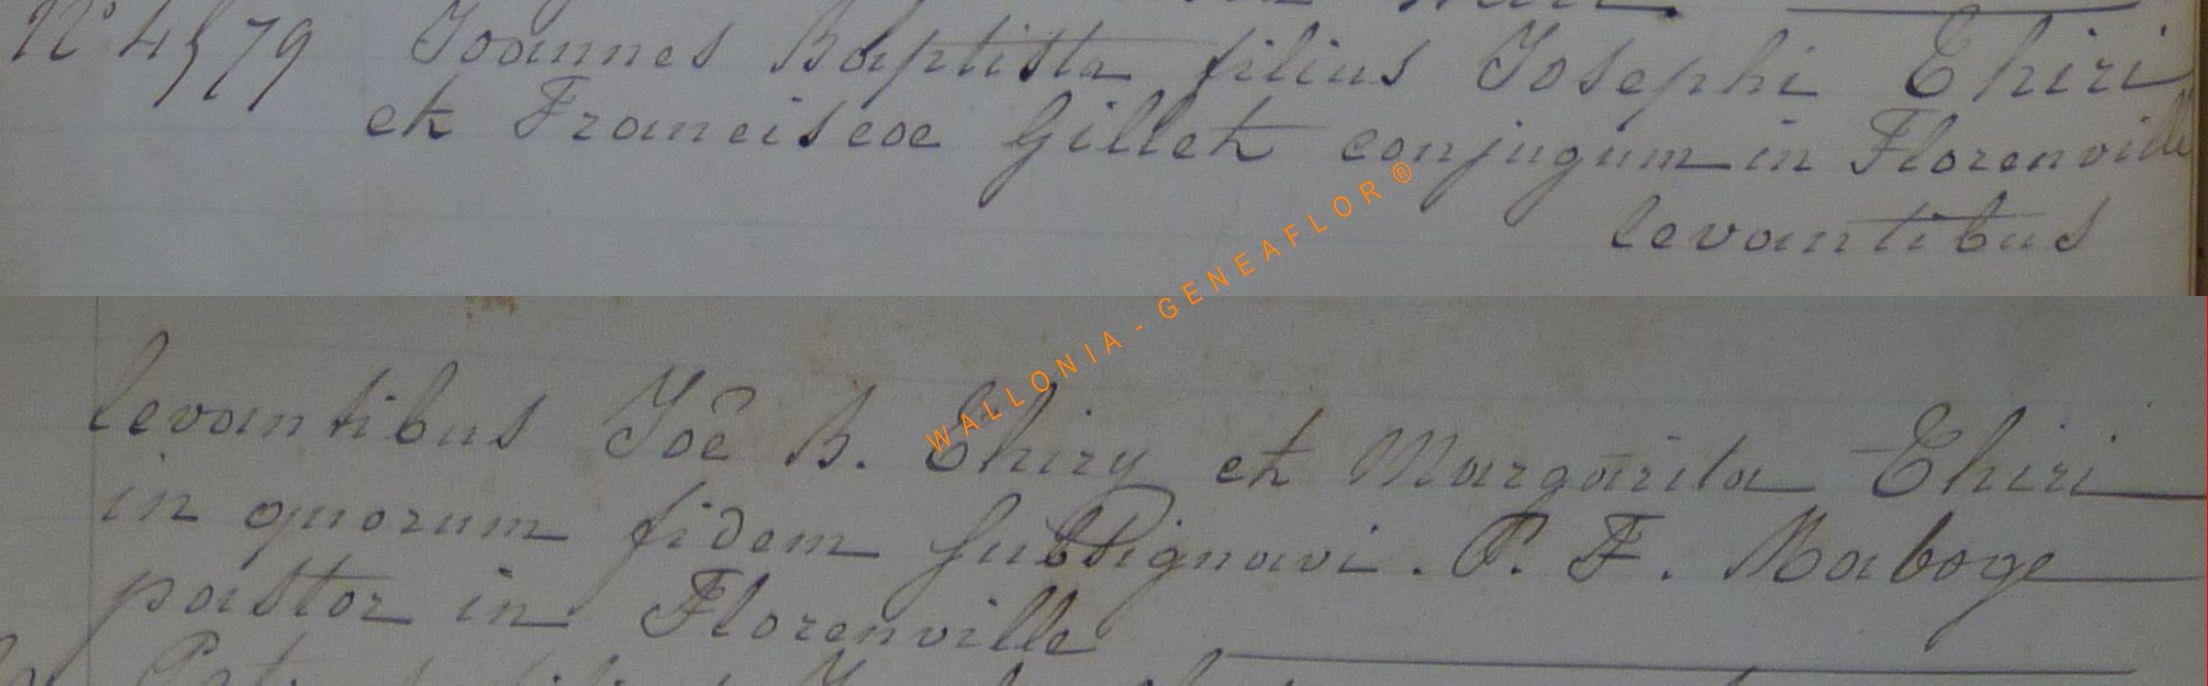 N° 4579 Joannes Baptista filius Josephi Thiri
et Franciscae Gillet conjugum in Florenville
levantibus
WALLONIA - GENEAFLOR ®
levantibus Joê B. Thiry et Margarita Thiri
in quorum fidem subsignavi. P. F. Maboge
pastor in Florenville